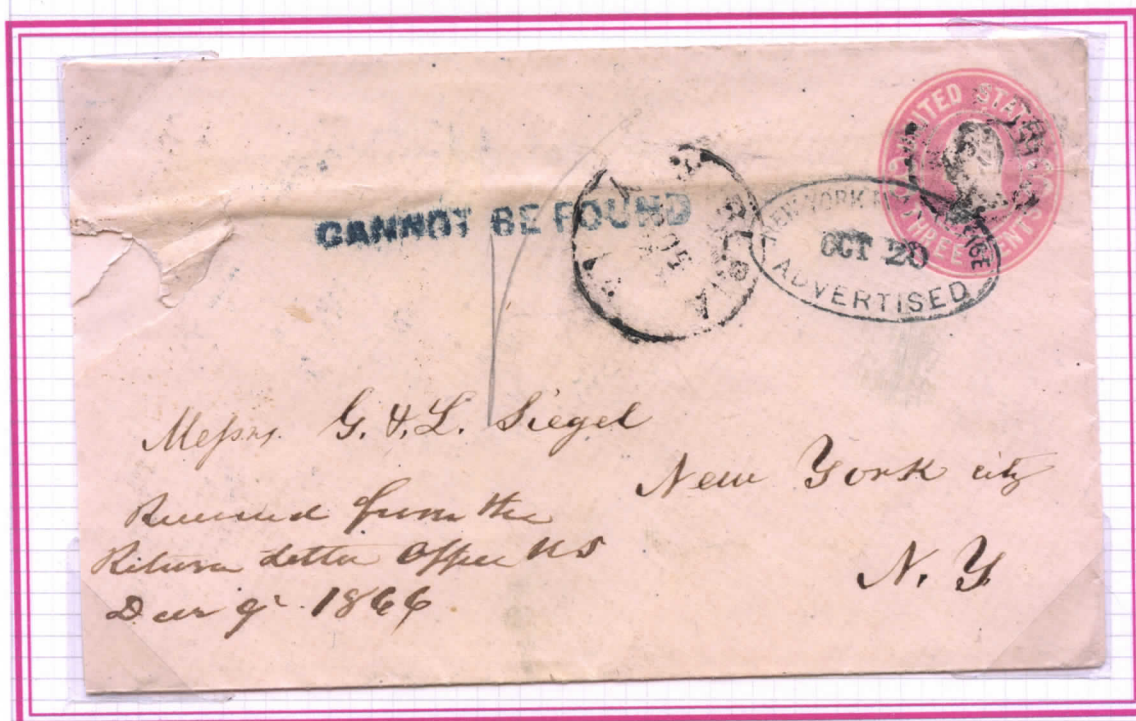 UNITED STATES
THREE CENTS
CANNOT BE FOUND
NEW YORK POST OFFICE
OCT 20
ADVERTISED
Messrs. G. & L. Siegel
New York city
N. Y
Received from the
Return Letter Office US
1866